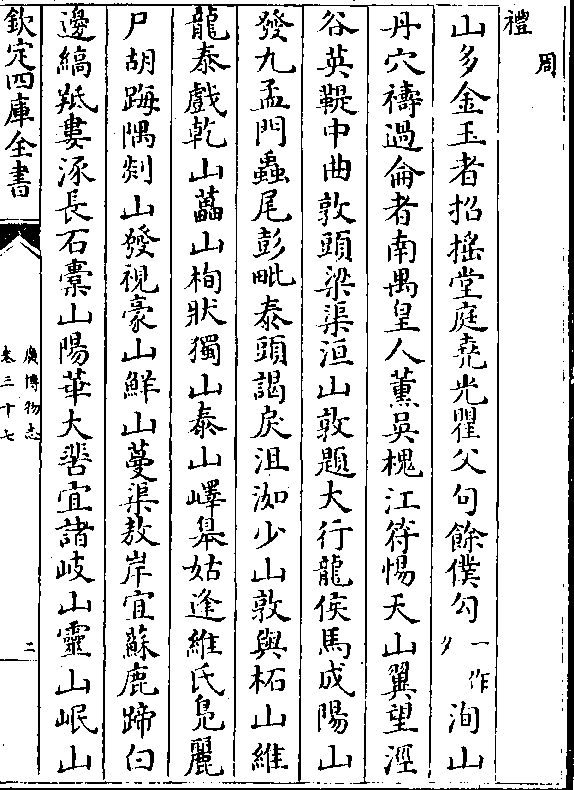 周
禮
山多金玉者招搖堂庭堯光瞿父句餘僕勾一作夕洵山
丹穴禱過侖者南禺皇人薰吳槐江符惕天山翼望涇
谷英鞮中曲敦頭梁渠洹山敦題大行龍侯馬成陽山
發九孟門蟲尾彭毗泰頭謁戾沮洳少山敦與柘山維
龍泰戲乾山藟山栒狀獨山泰山嶧皋姑逢維氏鳧麗
尸胡踇隅剡山發視豪山鮮山蔓渠敖岸宜蘇鹿蹄白
邊縞羝婁涿長石橐山陽華大𩇯宜諸岐山靈山岷山
欽定四庫全書
廣博物志
卷三十七
二